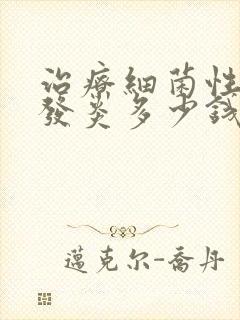 治療細菌性
發炎多少錢
邁克尔-喬丹